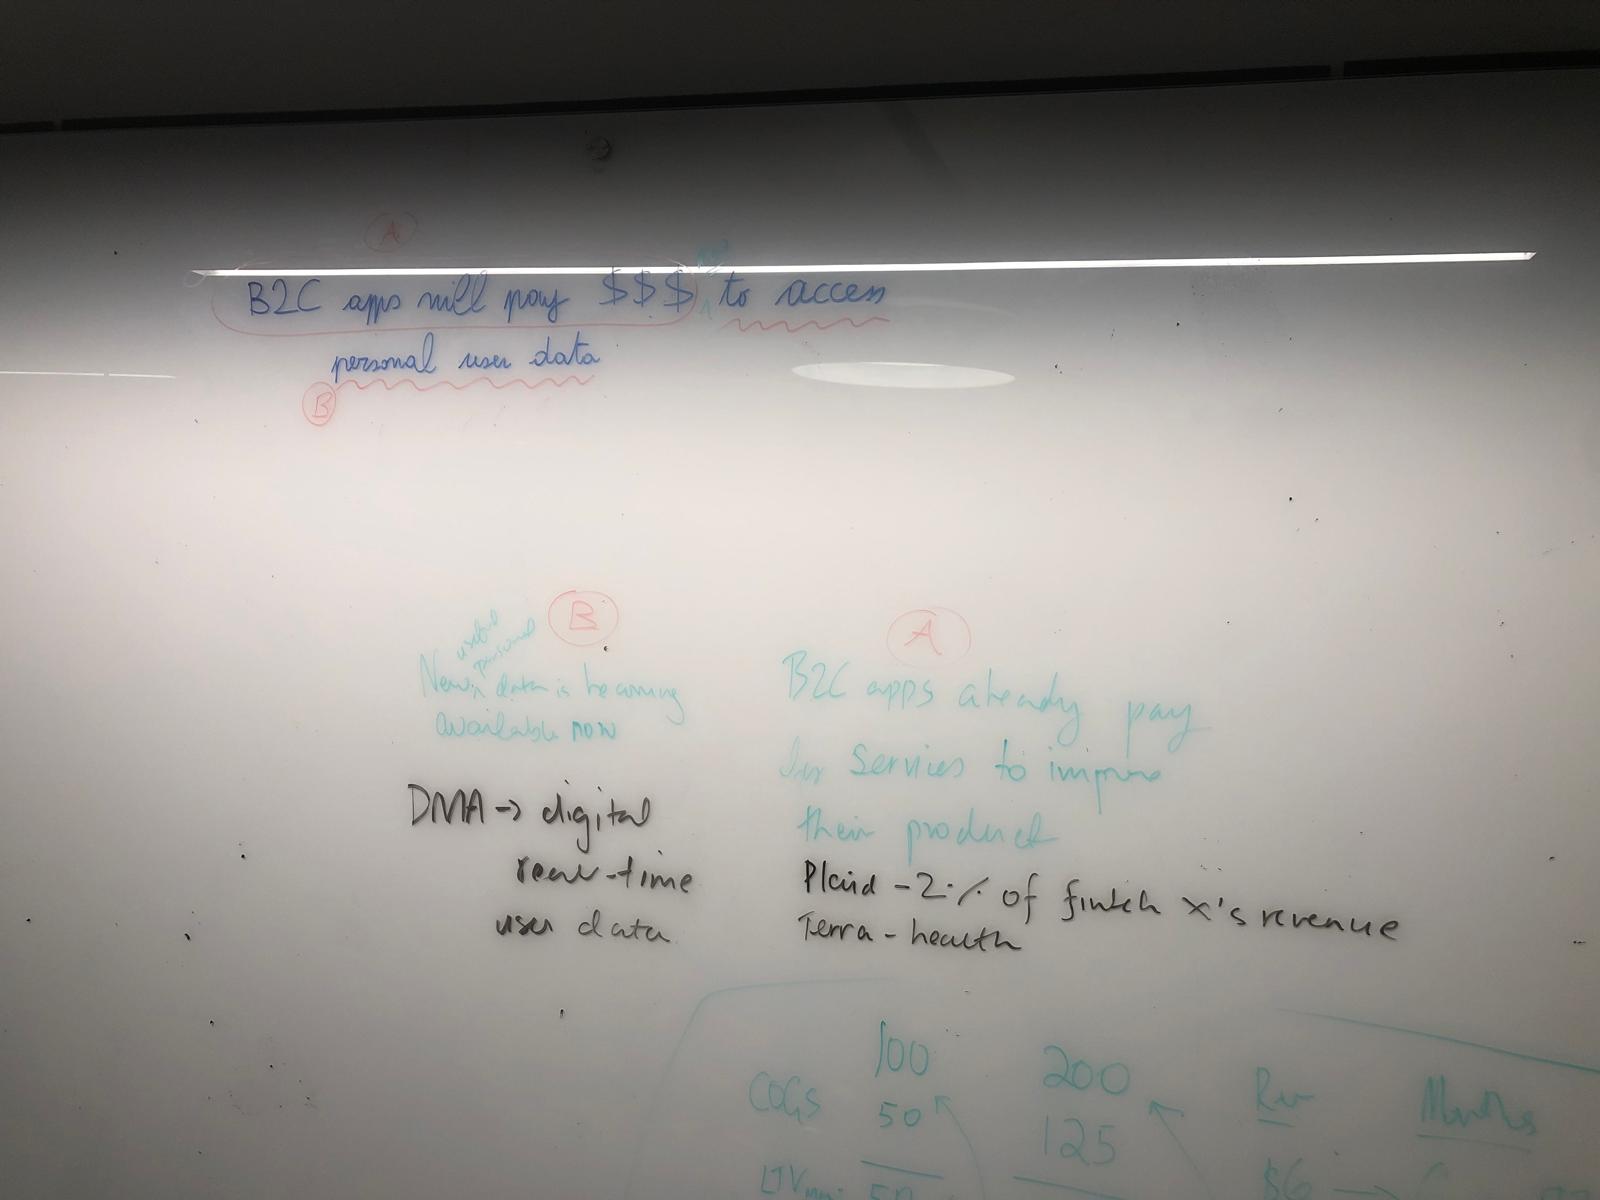 A
B2C apps will pay $$$ to access
personal user data
B
B
useful
personal
New data is becoming
available now
DMA -> digital
real-time
user data
A
B2C apps already pay
for services to improve
their product
Plaid - 2% of fintech x's revenue
Terra - health
100 200 Rev Months
COGS 50 125
LTV 50 $6 ->